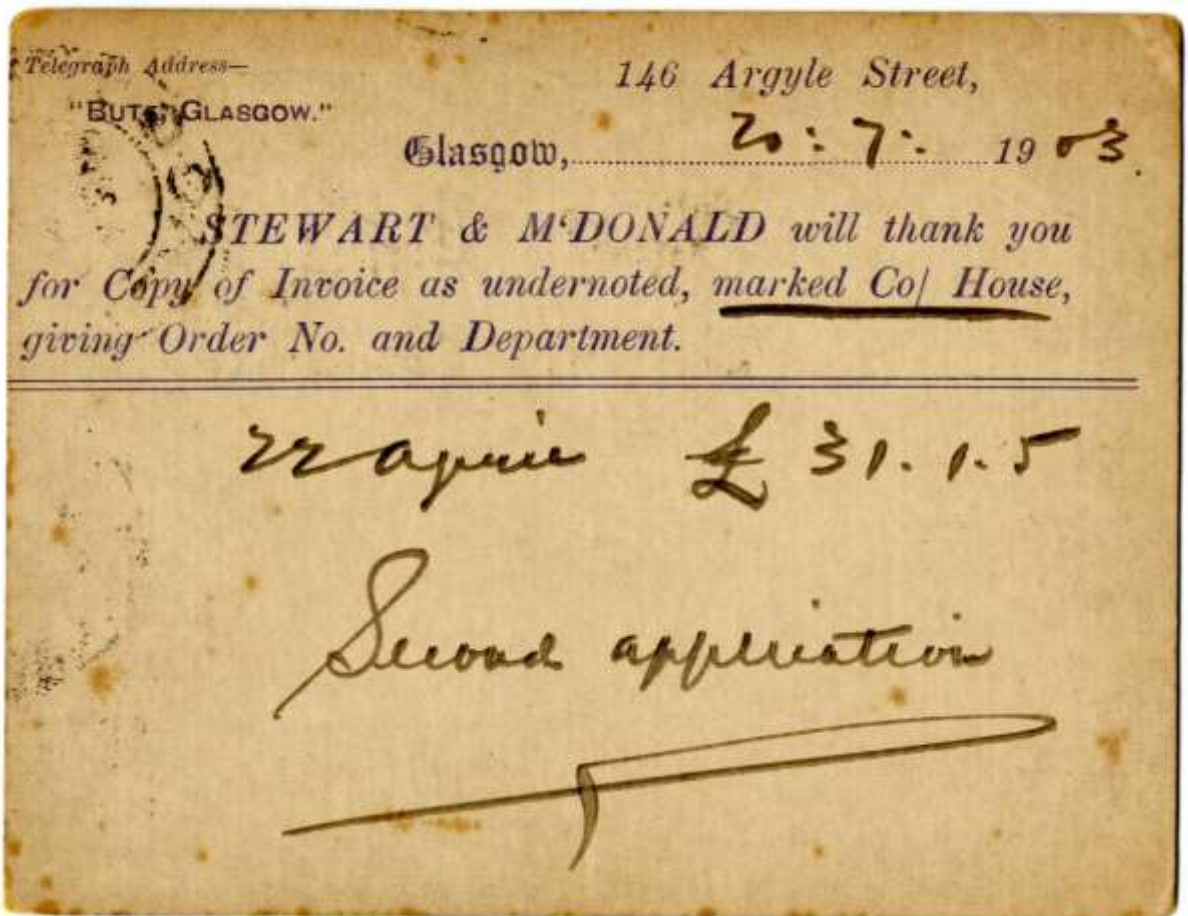 Telegraph Address—
"BUTE, GLASGOW."
146 Argyle Street,
Glasgow, 20: 7: 1903.
STEWART & M'DONALD will thank you
for Copy of Invoice as undernoted, marked Co/ House,
giving Order No. and Department.
22 April £31.1.5
Second application